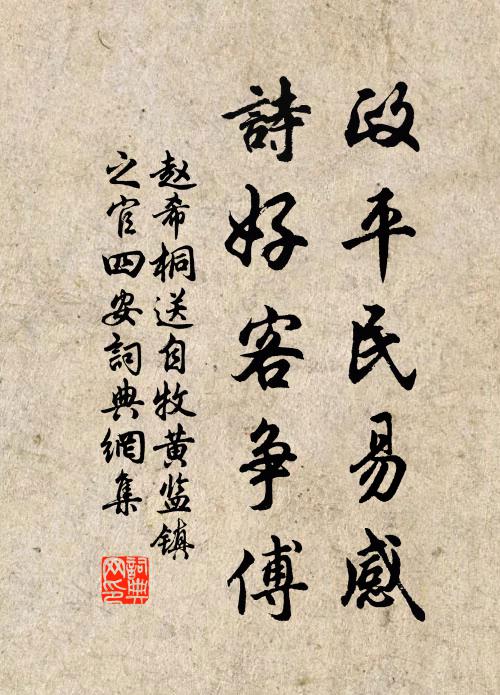 政平民易感
詩好客争傳
赵希桐送自牧黄监镇
之官四安詞典網集
詞典
网印